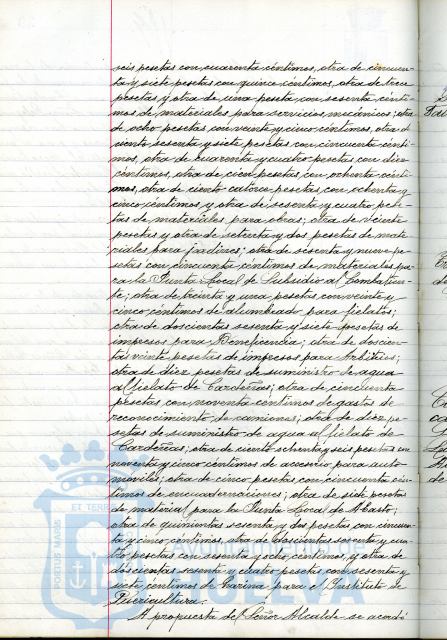 seis pesetas con cuarenta céntimos, otra de cincuen-
ta y siete pesetas con quince céntimos, otra de trece
pesetas y otra de una peseta con sesenta cénti-
mos de materiales para servicios mecánicos; otra
de ocho pesetas con veinte y cinco céntimos, otra de
ciento sesenta y siete pesetas con cincuenta cénti-
mos, otra de cuarenta y cuatro pesetas con diez
céntimos, otra de cien pesetas con ochenta cénti-
mos, otra de ciento catorce pesetas con ochenta y
cinco céntimos y otra de sesenta y cuatro pese-
tas de materiales para obras; otra de veinte
pesetas y otra de setenta y dos pesetas de mate-
riales para jardines; otra de sesenta y nueve pe-
setas con cincuenta céntimos de materiales pa-
ra la Junta Local de Subsidio al Combatien-
te; otra de treinta y una pesetas con veinte y
cinco céntimos de alumbrado para fielatos;
otra de doscientas sesenta y siete pesetas de
impresos para Beneficencia; otra de doscien-
tas veinte pesetas de impresos para Arbitrios;
otra de diez pesetas de suministro de agua
al fielato de Cardeñas; otra de cincuenta
pesetas con noventa céntimos de gastos de
reconocimiento de camiones; otra de diez pe-
setas de suministro de agua al fielato de
Cardeñas; otra de ciento ochenta y seis pesetas con
noventa y cinco céntimos de accesorio para auto-
móviles; otra de cinco pesetas con cincuenta cén-
timos de encuadernaciones; otra de siete pesetas
de material para la Junta Local de Abasto;
otra de quinientas sesenta y dos pesetas con cincuen-
ta y cinco céntimos, otra de doscientas sesenta y cua-
tro pesetas con sesenta y ocho céntimos, y otra de
doscientas sesenta y cuatro pesetas con sesenta y
siete céntimos de harina para el Instituto de
Puericultura.
A propuesta del Señor Alcalde se acordó
PORTUS MARIS
ET TERRAE
HUELVA